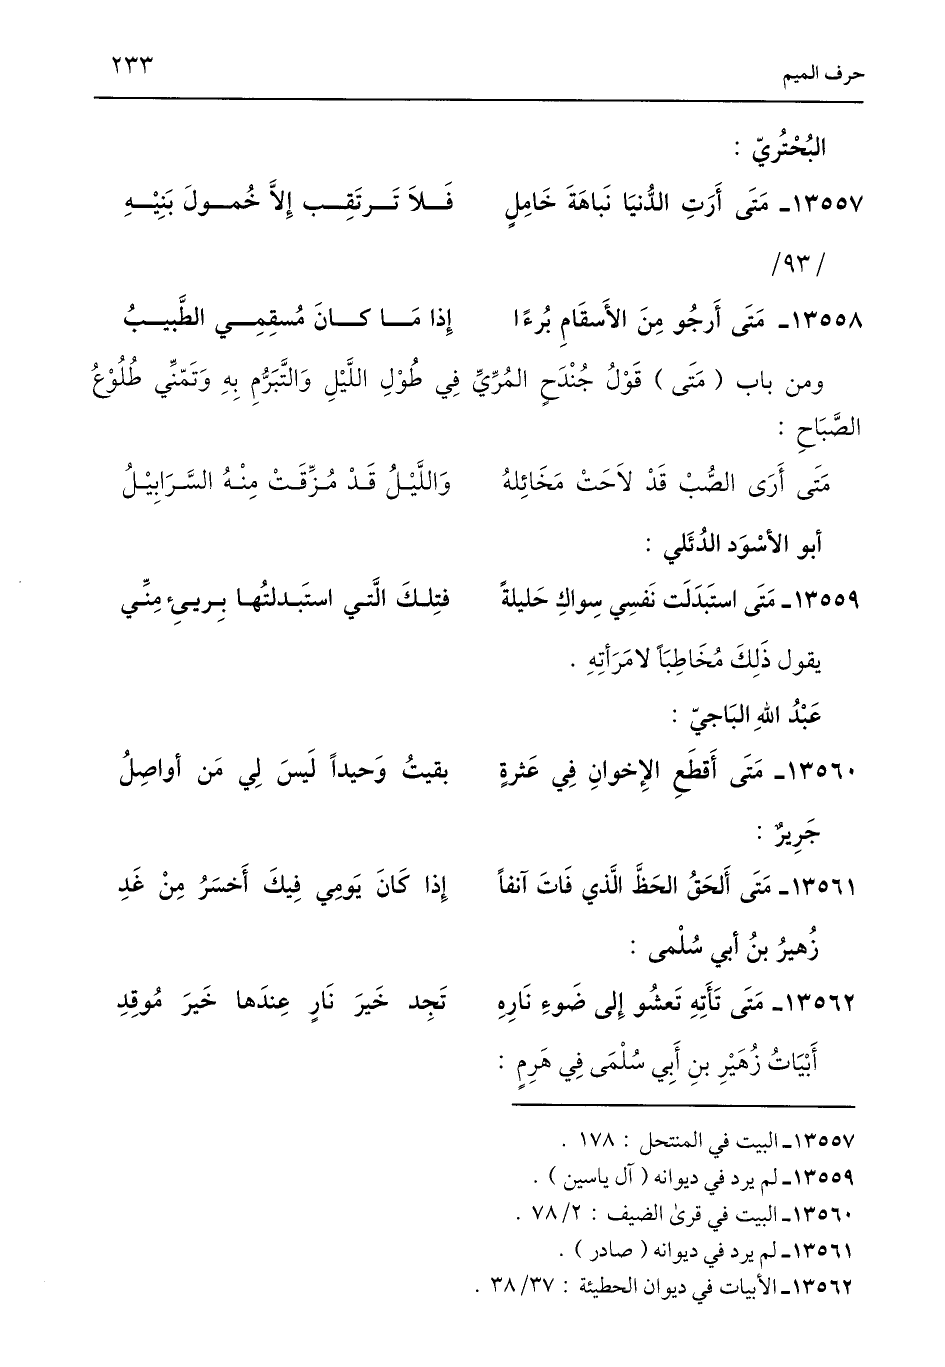 حرف الميم ٢٣٣
البُحْتُريّ :
١٣٥٥٧ـ مَتَى أَرَتِ الدُّنيَا نَباهَةَ خَامِلٍ فَلاَ تَرتَقِب إلاَّ خُمولَ بَنِيْهِ
/٩٣/
١٣٥٥٨ـ مَتَى أَرجُو مِنَ الأَسقَامِ بُرءًا إذا مَا كانَ مُسقِمِي الطَّبيبُ
ومن باب ( مَتَى ) قَوْلُ جُنْدَحٍ المُرِّيِّ فِي طُوْلِ اللَّيْلِ وَالتَّبَرُّمِ بِهِ وَتَمَنِّي طُلُوْعُ
الصَّبَاحِ :
مَتَى أَرَى الصُّبْ قَدْ لاَحَتْ مَخَائِلهُ وَاللَّيْلُ قَدْ مُزِّقَتْ مِنْهُ السَّرَابِيْلُ
أبو الأسْوَد الدُئَلي :
١٣٥٥٩ـ مَتَى استَبَدَلَت نَفسِي سِواكِ حَليلةً فتِلكَ الَّتي استَبدلتُها بِريىءٍ مِنِّي
يقول ذَلِكَ مُخَاطِبَاً لامَرَأتِهِ .
عَبْدُ اللهِ البَاجيّ :
١٣٥٦٠ـ مَتَى أَقطَعِ الإخوانِ فِي عَثرةٍ بقيتُ وَحيداً لَيسَ لِي مَن أواصِلُ
جَرِيرٌ :
١٣٥٦١ـ مَتَى أَلحَقُ الحَظَّ الَّذي فَاتَ آنفاً إذا كَانَ يَومِي فِيكَ أَخسَرُ مِنْ غَدِ
زُهيرُ بنُ أبي سُلْمى :
١٣٥٦٢ـ مَتَى تَأتِهِ تَعشُو إلى ضَوءِ نَارِهِ تَجِد خَيرَ نَارٍ عِندَها خَيرَ مُوقِدِ
أَبْيَاتُ زُهَيْرِ بنِ أَبِي سُلْمَى فِي هَرِمٍ :
١٣٥٥٧ـ البيت في المنتحل : ١٧٨ .
١٣٥٥٩ـ لم يرد في ديوانه ( آل ياسين ) .
١٣٥٦٠ـ البيت في قرىٰ الضيف : ٧٨/٢ .
١٣٥٦١ـ لم يرد في ديوانه ( صادر ) .
١٣٥٦٢ـ الأبيات في ديوان الحطيئة : ٣٨/٣٧ .